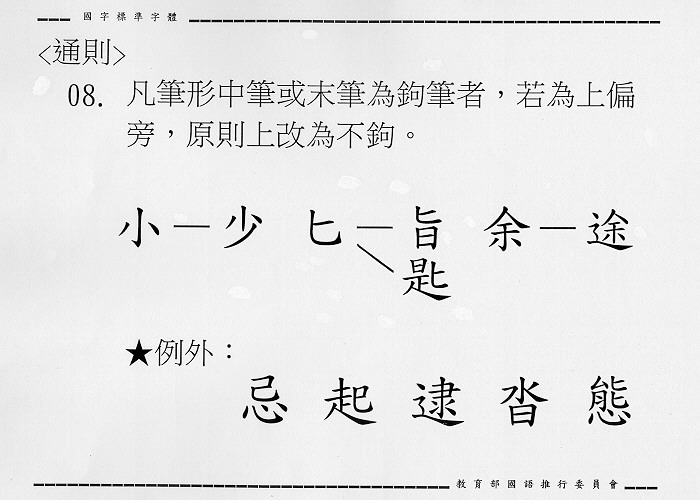 國字標準字體
<通則>
08. 凡筆形中筆或末筆為鉤筆者，若為上偏
旁，原則上改為不鉤。
小－少 匕－旨 余－途
匙
★例外：
忌 起 逮 沓 態
教育部國語推行委員會